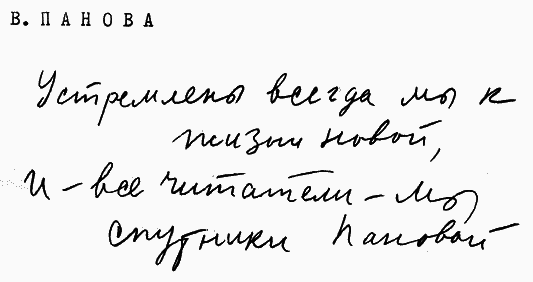 В. ПАНОВА
Устремлены всегда мы к
жизни новой,
И – все читатели – мы
спутники Пановой